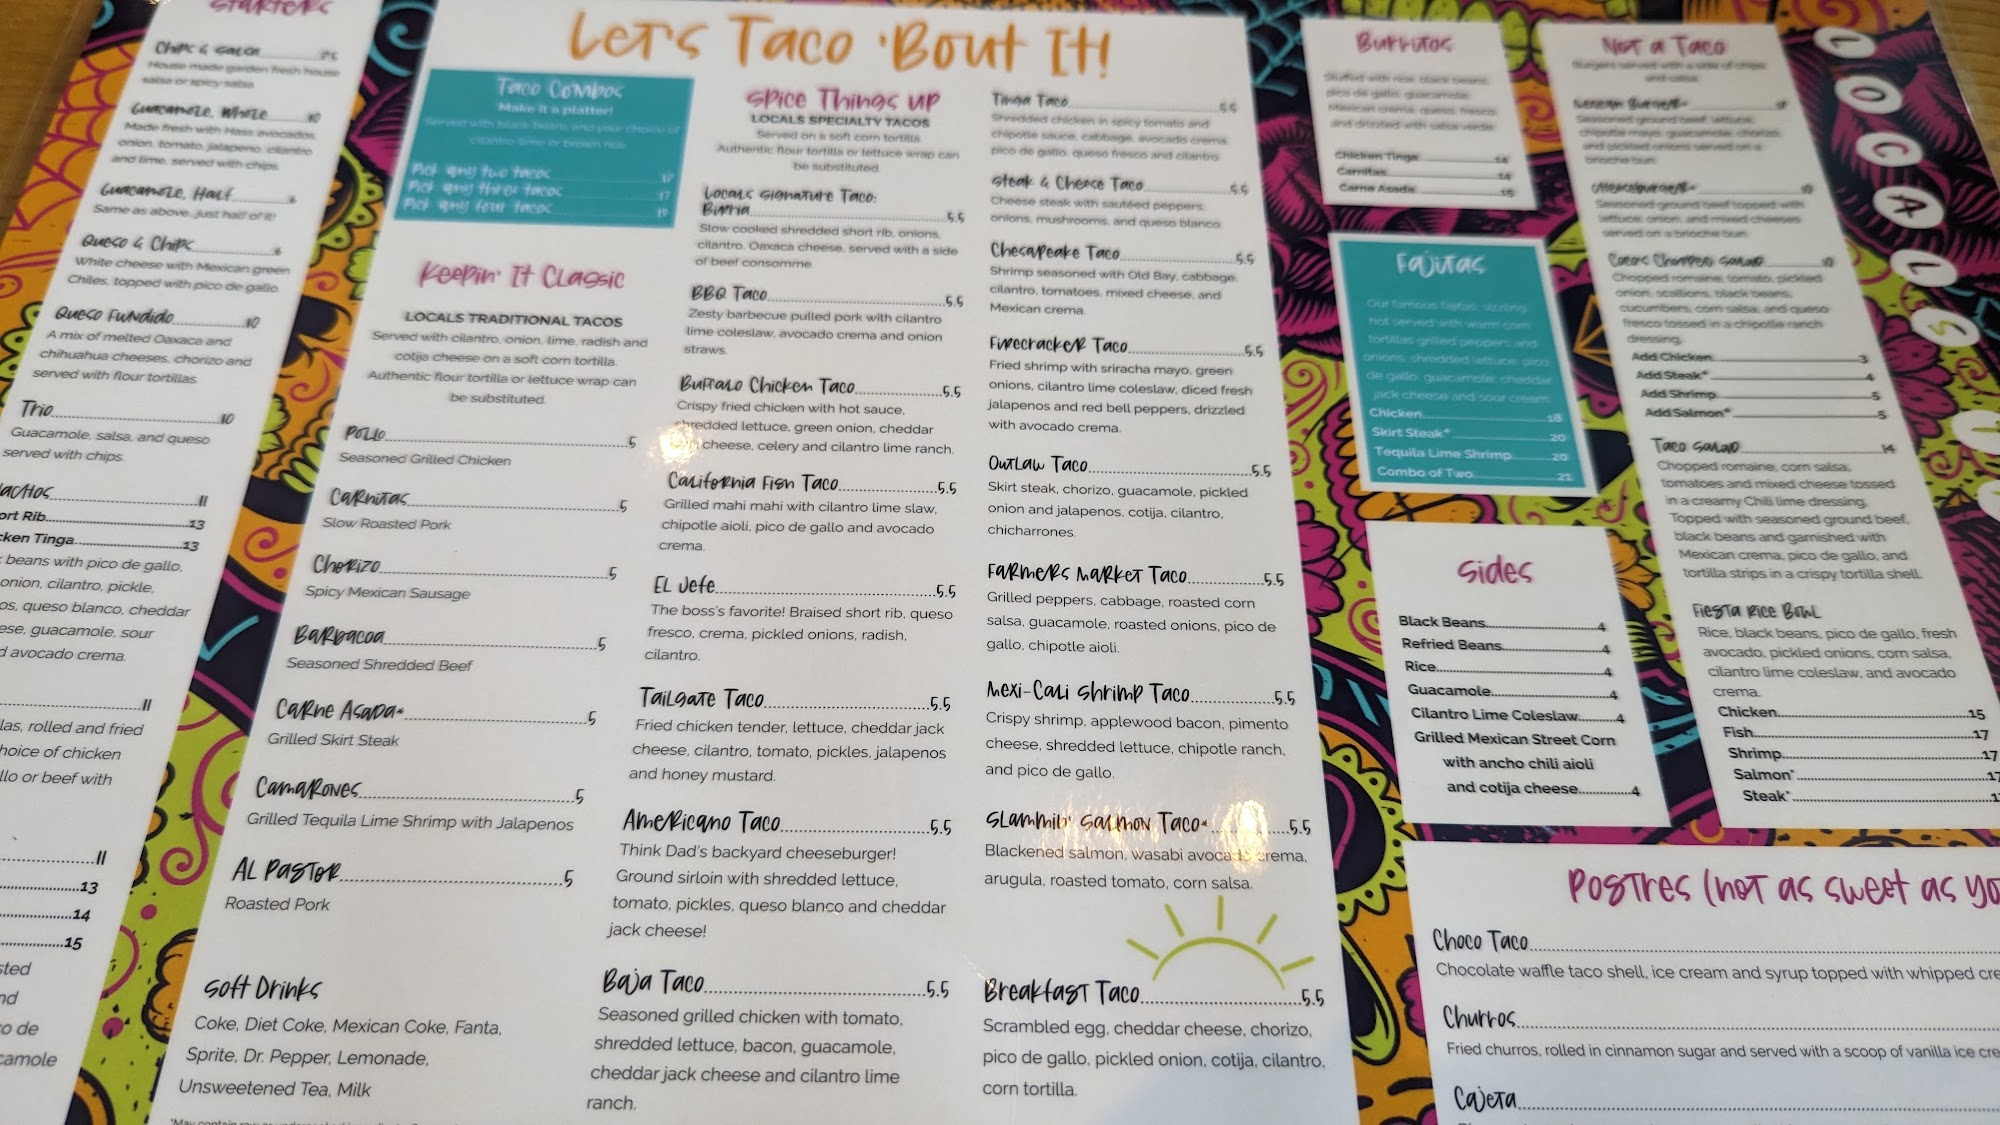 Starters
Chips & Salsa
House made garden fresh house
salsa or spicy salsa.
Guacamole, Whole 10
Made fresh with Hass avocados,
onion, tomato, jalapeno, cilantro
and lime, served with chips.
Guacamole, Half 6
Same as above...just half of it!
Queso & Chips 6
White cheese with Mexican green
Chiles, topped with pico de gallo
Queso Fundido 10
A mix of melted Oaxaca and
chihuahua cheeses, chorizo and
served with flour tortillas.
Trio 10
Guacamole, salsa, and queso
served with chips.
11
Rib 13
Tinga 13
beans with pico de gallo,
onion, cilantro, pickle,
queso blanco, cheddar
guacamole, sour
avocado crema.
11
rolled and fried
choice of chicken
or beef with
11
13
14
15
Let's Taco 'Bout It!
Taco Combos
Make it a platter!
Served with black beans and your choice of
cilantro-lime or brown rice
Pick any two tacos 12
Pick any three tacos 17
Pick any four tacos 19
Keepin' It Classic
LOCALS TRADITIONAL TACOS
Served with cilantro, onion, lime, radish and
cotija cheese on a soft corn tortilla.
Authentic flour tortilla or lettuce wrap can
be substituted
Pollo 5
Seasoned Grilled Chicken
Carnitas 5
Slow Roasted Pork
Chorizo 5
Spicy Mexican Sausage
Barbacoa 5
Seasoned Shredded Beef
Carne Asada* 5
Grilled Skirt Steak
Camarones 5
Grilled Tequila Lime Shrimp with Jalapenos
Al Pastor 5
Roasted Pork
Soft Drinks
Coke, Diet Coke, Mexican Coke, Fanta,
Sprite, Dr. Pepper, Lemonade,
Unsweetened Tea, Milk
Spice Things Up
LOCALS SPECIALTY TACOS
Served on a soft corn tortilla
Authentic flour tortilla or lettuce wrap can
be substituted
Locals Signature Taco:
Birria 5.5
Slow cooked shredded short rib, onions,
cilantro, Oaxaca cheese, served with a side
of beef consomme.
BBQ Taco 5.5
Zesty barbecue pulled pork with cilantro
lime coleslaw, avocado crema and onion
straws.
Buffalo Chicken Taco 5.5
Crispy fried chicken with hot sauce,
shredded lettuce, green onion, cheddar
cheese, celery and cilantro lime ranch.
California Fish Taco 5.5
Grilled mahi mahi with cilantro lime slaw,
chipotle aioli, pico de gallo and avocado
crema.
El Jefe 5.5
The boss's favorite! Braised short rib, queso
fresco, crema, pickled onions, radish,
cilantro.
Tailgate Taco 5.5
Fried chicken tender, lettuce, cheddar jack
cheese, cilantro, tomato, pickles, jalapenos
and honey mustard.
Americano Taco 5.5
Think Dad's backyard cheeseburger!
Ground sirloin with shredded lettuce,
tomato, pickles, queso blanco and cheddar
jack cheese!
Baja Taco 5.5
Seasoned grilled chicken with tomato,
shredded lettuce, bacon, guacamole,
cheddar jack cheese and cilantro lime
ranch.
Tinga Taco 5.5
Shredded chicken in spicy tomato and
chipotle sauce, cabbage, avocado crema
pico de gallo, queso fresco and cilantro
Steak & Cheese Taco 5.5
Cheese steak with sautéed peppers,
onions, mushrooms, and queso blanco.
Chesapeake Taco 5.5
Shrimp seasoned with Old Bay, cabbage,
cilantro, tomatoes, mixed cheese, and
Mexican crema.
Firecracker Taco 5.5
Fried shrimp with sriracha mayo, green
onions, cilantro lime coleslaw, diced fresh
jalapenos and red bell peppers, drizzled
with avocado crema.
Outlaw Taco 5.5
Skirt steak, chorizo, guacamole, pickled
onion and jalapenos, cotija, cilantro,
chicharrones.
Farmers Market Taco 5.5
Grilled peppers, cabbage, roasted corn
salsa, guacamole, roasted onions, pico de
gallo, chipotle aioli.
Mexi-Cali Shrimp Taco 5.5
Crispy shrimp, applewood bacon, pimento
cheese, shredded lettuce, chipotle ranch,
and pico de gallo.
Slammin' Salmon Taco* 5.5
Blackened salmon, wasabi avocado crema,
arugula, roasted tomato, corn salsa.
Breakfast Taco 5.5
Scrambled egg, cheddar cheese, chorizo,
pico de gallo, pickled onion, cotija, cilantro,
corn tortilla.
Burritos
Stuffed with rice, black beans,
pico de gallo, guacamole,
Mexican crema, queso fresco
and drizzled with salsa verde.
Chicken Tinga 14
Carnitas 14
Carne Asada 15
Fajitas
Our famous fajitas, sizzling
hot served with warm corn
tortillas grilled peppers and
onions, shredded lettuce, pico
de gallo, guacamole, cheddar
jack cheese and sour cream.
Chicken 18
Skirt Steak* 20
Tequila Lime Shrimp 20
Combo of Two 21
Sides
Black Beans 4
Refried Beans 4
Rice 4
Guacamole 4
Cilantro Lime Coleslaw 4
Grilled Mexican Street Corn
with ancho chili aioli
and cotija cheese 4
Not a Taco
Burgers served with a side of chips
and salsa
Mexican Burger*
Seasoned ground beef, lettuce,
chipotle mayo, guacamole, chorizo
and pickled onions served on a
brioche bun
Seasoned ground beef topped with
lettuce, onion, and mixed cheeses
served on a brioche bun
Locals Chopped Salad 10
Chopped romaine, tomato, pickled
onion, scallions, black beans,
cucumbers, corn salsa, and queso
fresco tossed in a chipotle ranch
dressing.
Add Chicken 3
Add Steak* 4
Add Shrimp 5
Add Salmon* 5
Taco Salad 14
Chopped romaine, corn salsa,
tomatoes and mixed cheese tossed
in a creamy Chili lime dressing.
Topped with seasoned ground beef,
black beans and garnished with
Mexican crema, pico de gallo, and
tortilla strips in a crispy tortilla shell.
Fiesta Rice Bowl
Rice, black beans, pico de gallo, fresh
avocado, pickled onions, corn salsa,
cilantro lime coleslaw, and avocado
crema.
Chicken 15
Fish 17
Shrimp 17
Salmon*
Steak*
LOCALS
Postres (not as sweet as
Choco Taco
Chocolate waffle taco shell, ice cream and syrup topped with whipped
Churros
Fried churros, rolled in cinnamon sugar and served with a scoop of vanilla ice
Cajeta